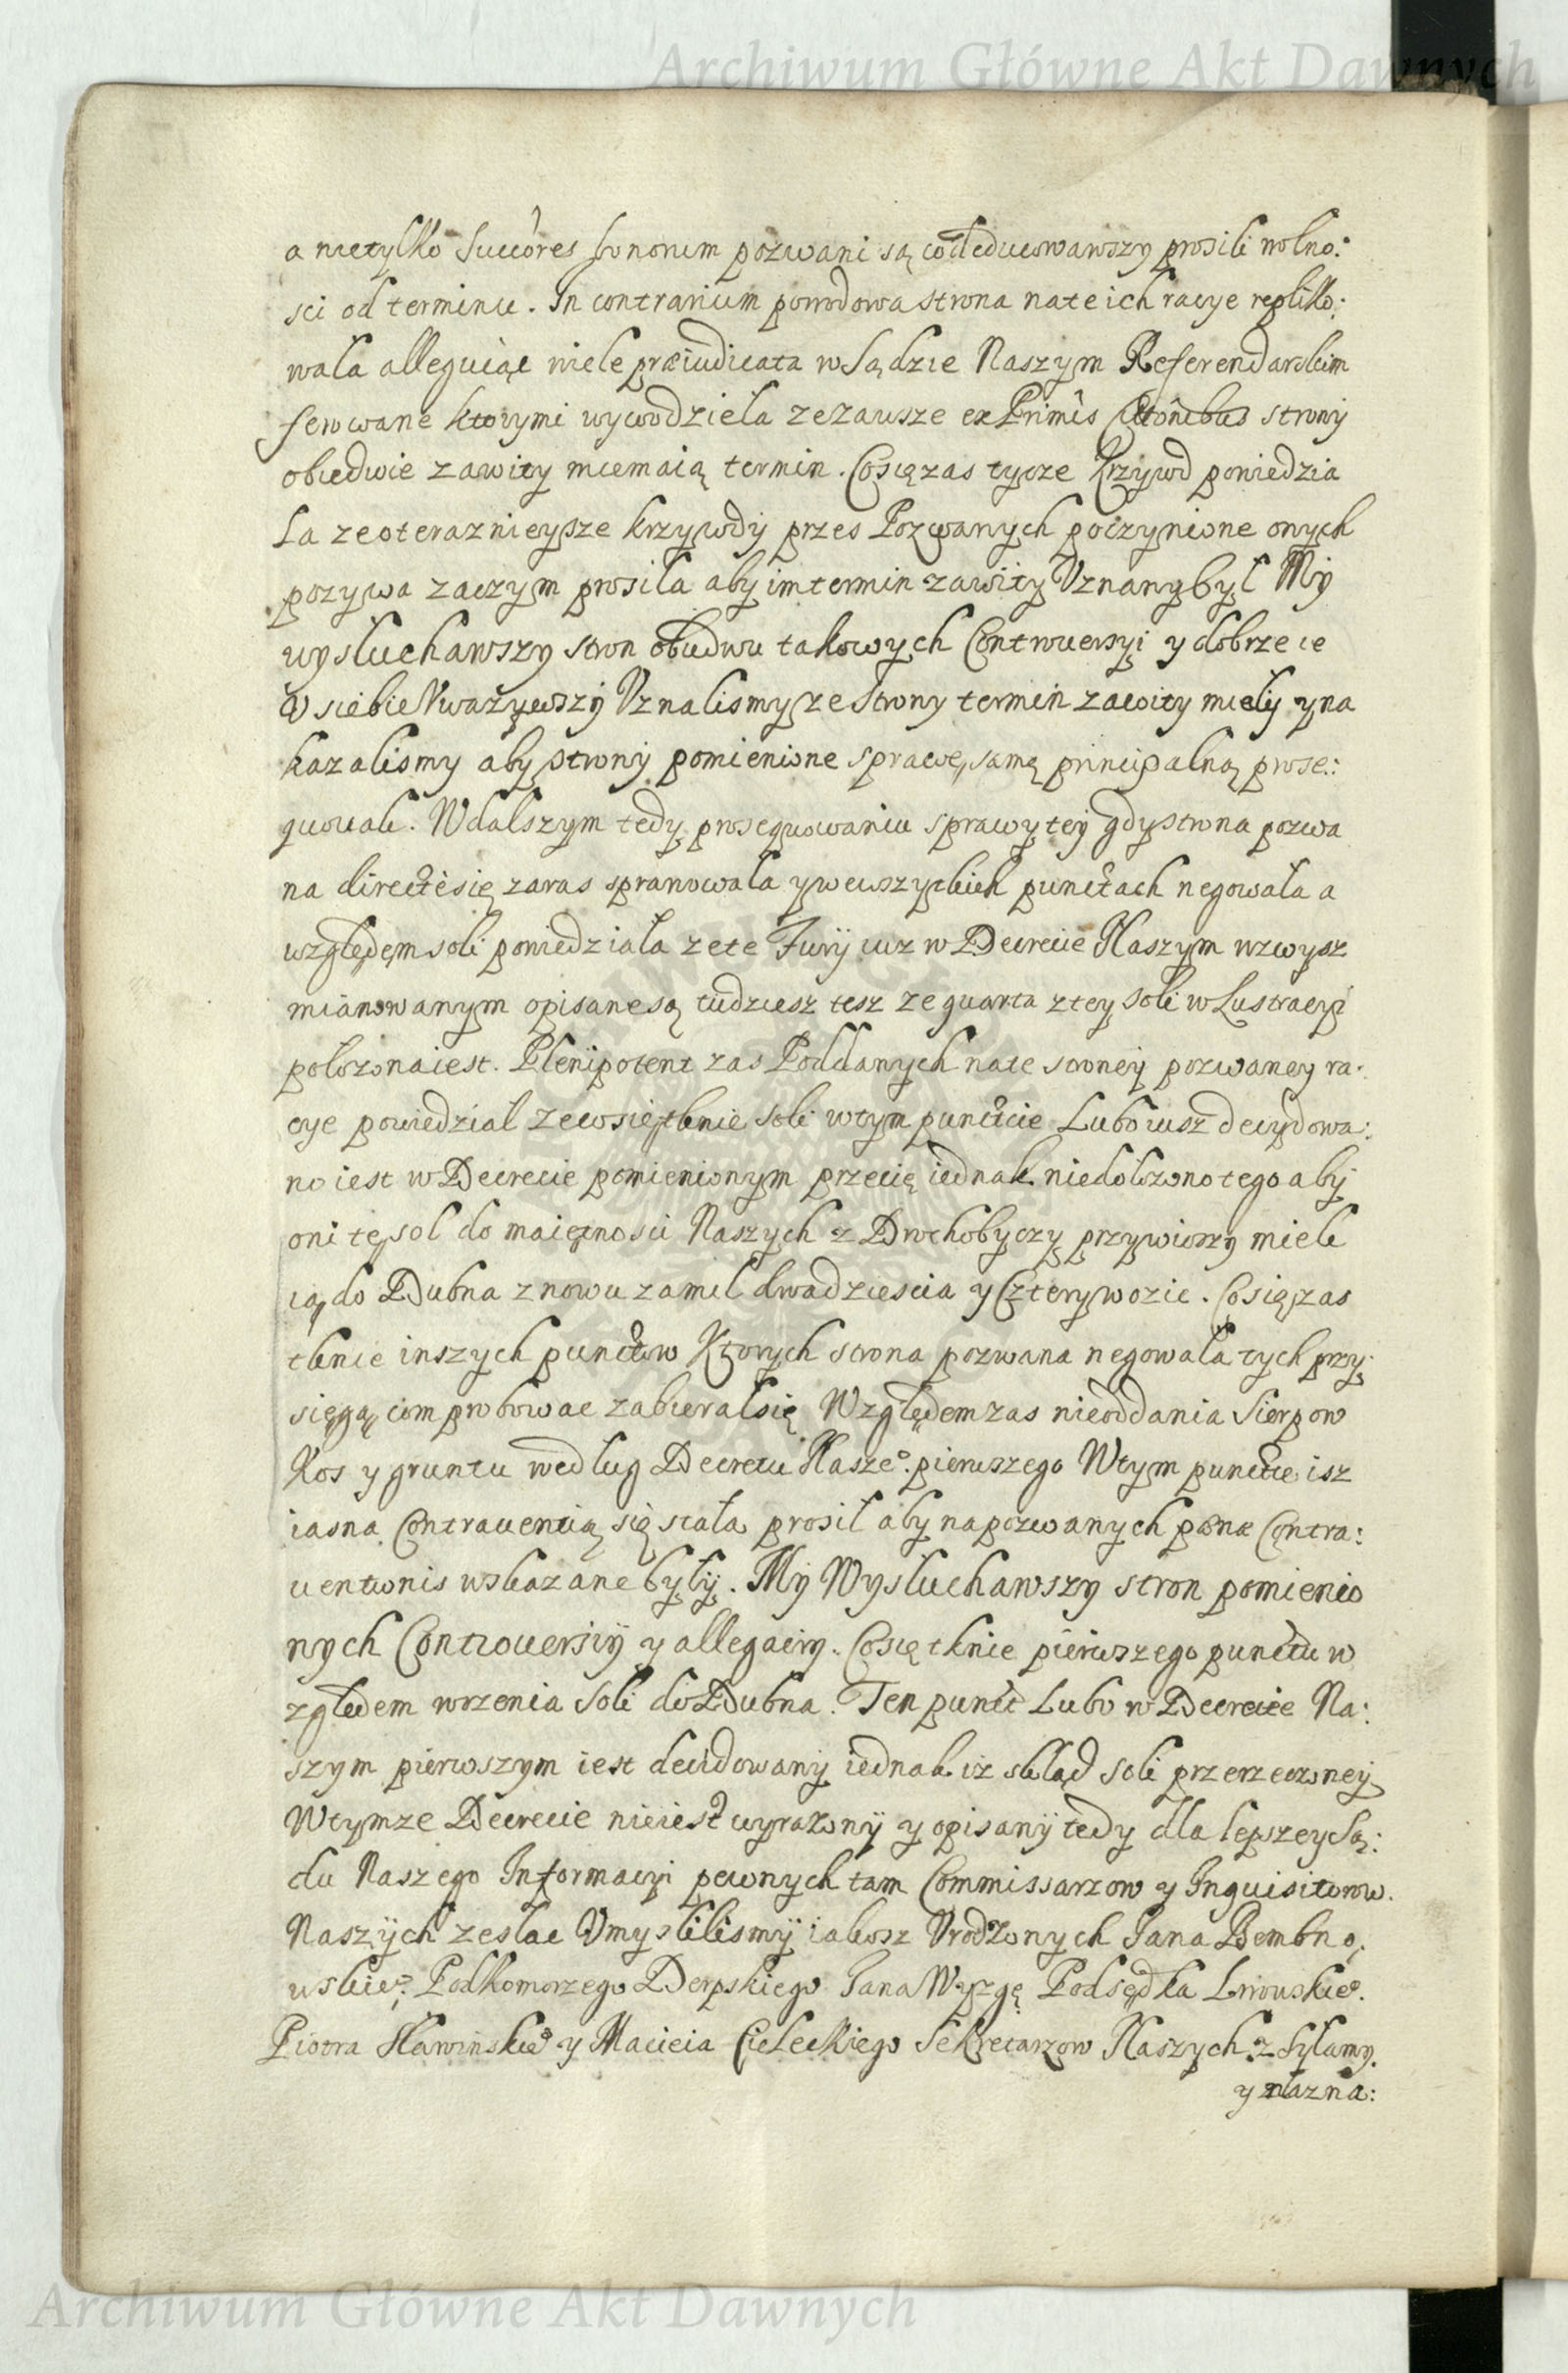 Archiwum Główne Akt Dawnych
a nietylko Succores bonorum pozwani są collducowawszy prosili wolno:
sci od terminu. In contrarium powodowa strona nate ich racye repliko:
wała alleguiąc wiele præiudicata w Sądzie Naszym Referendarskim
ferowane ktorymi wywodziela ze zawsze ex Primis Cittonibus strony
obiedwie zawity miemaią termin. Cosię zas tycze krzywd powiedzia
ła ze o teraznieysze krzywdy przes Pozwanych poczynione onych
pozywa zaczym prosiła aby im termin zawity Uznany był My
wysłuchawszy stron obudwu takowych Controuersyi y dobrze ie
W siebie Uwazywszy Uznalismy ze strony termin zawity miely y na
kazalismy aby strony pomienione sprawę samą principalną prose:
quowali. W dalszym tedy prosequowaniu sprawy tey gdy strona pozwa
na directè się zaras sprawowała y we wszytkich punctach negowała a
względem soli powiedziała ze te Fury iusz w Decrecie Naszym wzwysz
mianowanym opisane są tudziesz tesz ze quarta z tey soli w Lustracyi
połozona iest. Plenipotent zas Poddanych na te stroney pozwaney ra:
cye powiedział ze co się tknie soli w tym punctcie Lubo iusz decydowa:
no iest w Decrecie pomienionym przecię iednak niedołozono tego aby
oni tę sol do maiętnosci Naszych z Drohobyczy przywiozszy mieli
ią do Dubna znowu zamil dwadziescia y Cztery wozic. Co się zas
tknie inszych punctow Ktorych strona pozwana negowała tych przy:
sięgą comprobowac zabierał się Względem zas nieoddania Sierpow
Kos y gruntu według Decretu Nasze° pierwszego W tym punctcie isz
iasna Contrauentią się stała prosił aby na pozwanych pœnæ Contra:
uentionis wskazane były. My Wysłuchawszy stron pomienio
nych Controuersiy y allegaciy. Co się tknie pierwszego punctu w
zględem wozenia Soli do Dubna. Ten punct Lubo w Decrecie Na:
szym pierwszym iest decidowany iednak iż skład soli przerzeczoney
W tymze Decrecie nieiest wyrazony y opisany tedy dla lepszey Są:
du Naszego Informacyi pewnych tam Commissarzow y Inquisitorow
Naszych zesłac Umyslilismy iakosz Urodzonych Jana Dembno:
wskie° Podkomorzego Derpskiego Jana Wyzgę Podsędka Lwowskie°
Piotra Sławinskie° y Macieia Cieleckiego Sekretarzow Naszych z Sylamy
y znazna:
Archiwum Główne Akt Dawnych